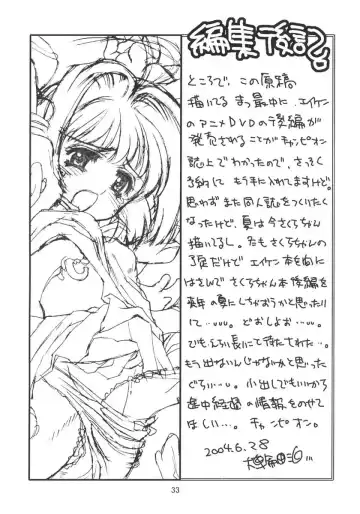 編集後記。
ところで、この原稿
描いてる まっ最中に、エイケン
のアニメDVDの後編が
発売されることがチャンピオン
誌上でわかったので、さっそく
予約して もう手に入れてますけど。
思わずまた同人誌をつくりたく
なったけど、夏は今さくらちゃん
描いてるし。冬もさくらちゃんの
予定だけどエイケン本を間に
はさんで さくらちゃん本後編を
来年の夏にしちゃおうかと思ったり
して…。どおしよお…。
でもえらい長いこと待たされた…。
もう出ないんじゃないかと思った
ぐらい…。小出しでもいいから
途中経過の情報をのせて
ほしい…。チャンピオン。
2004.6.28
33